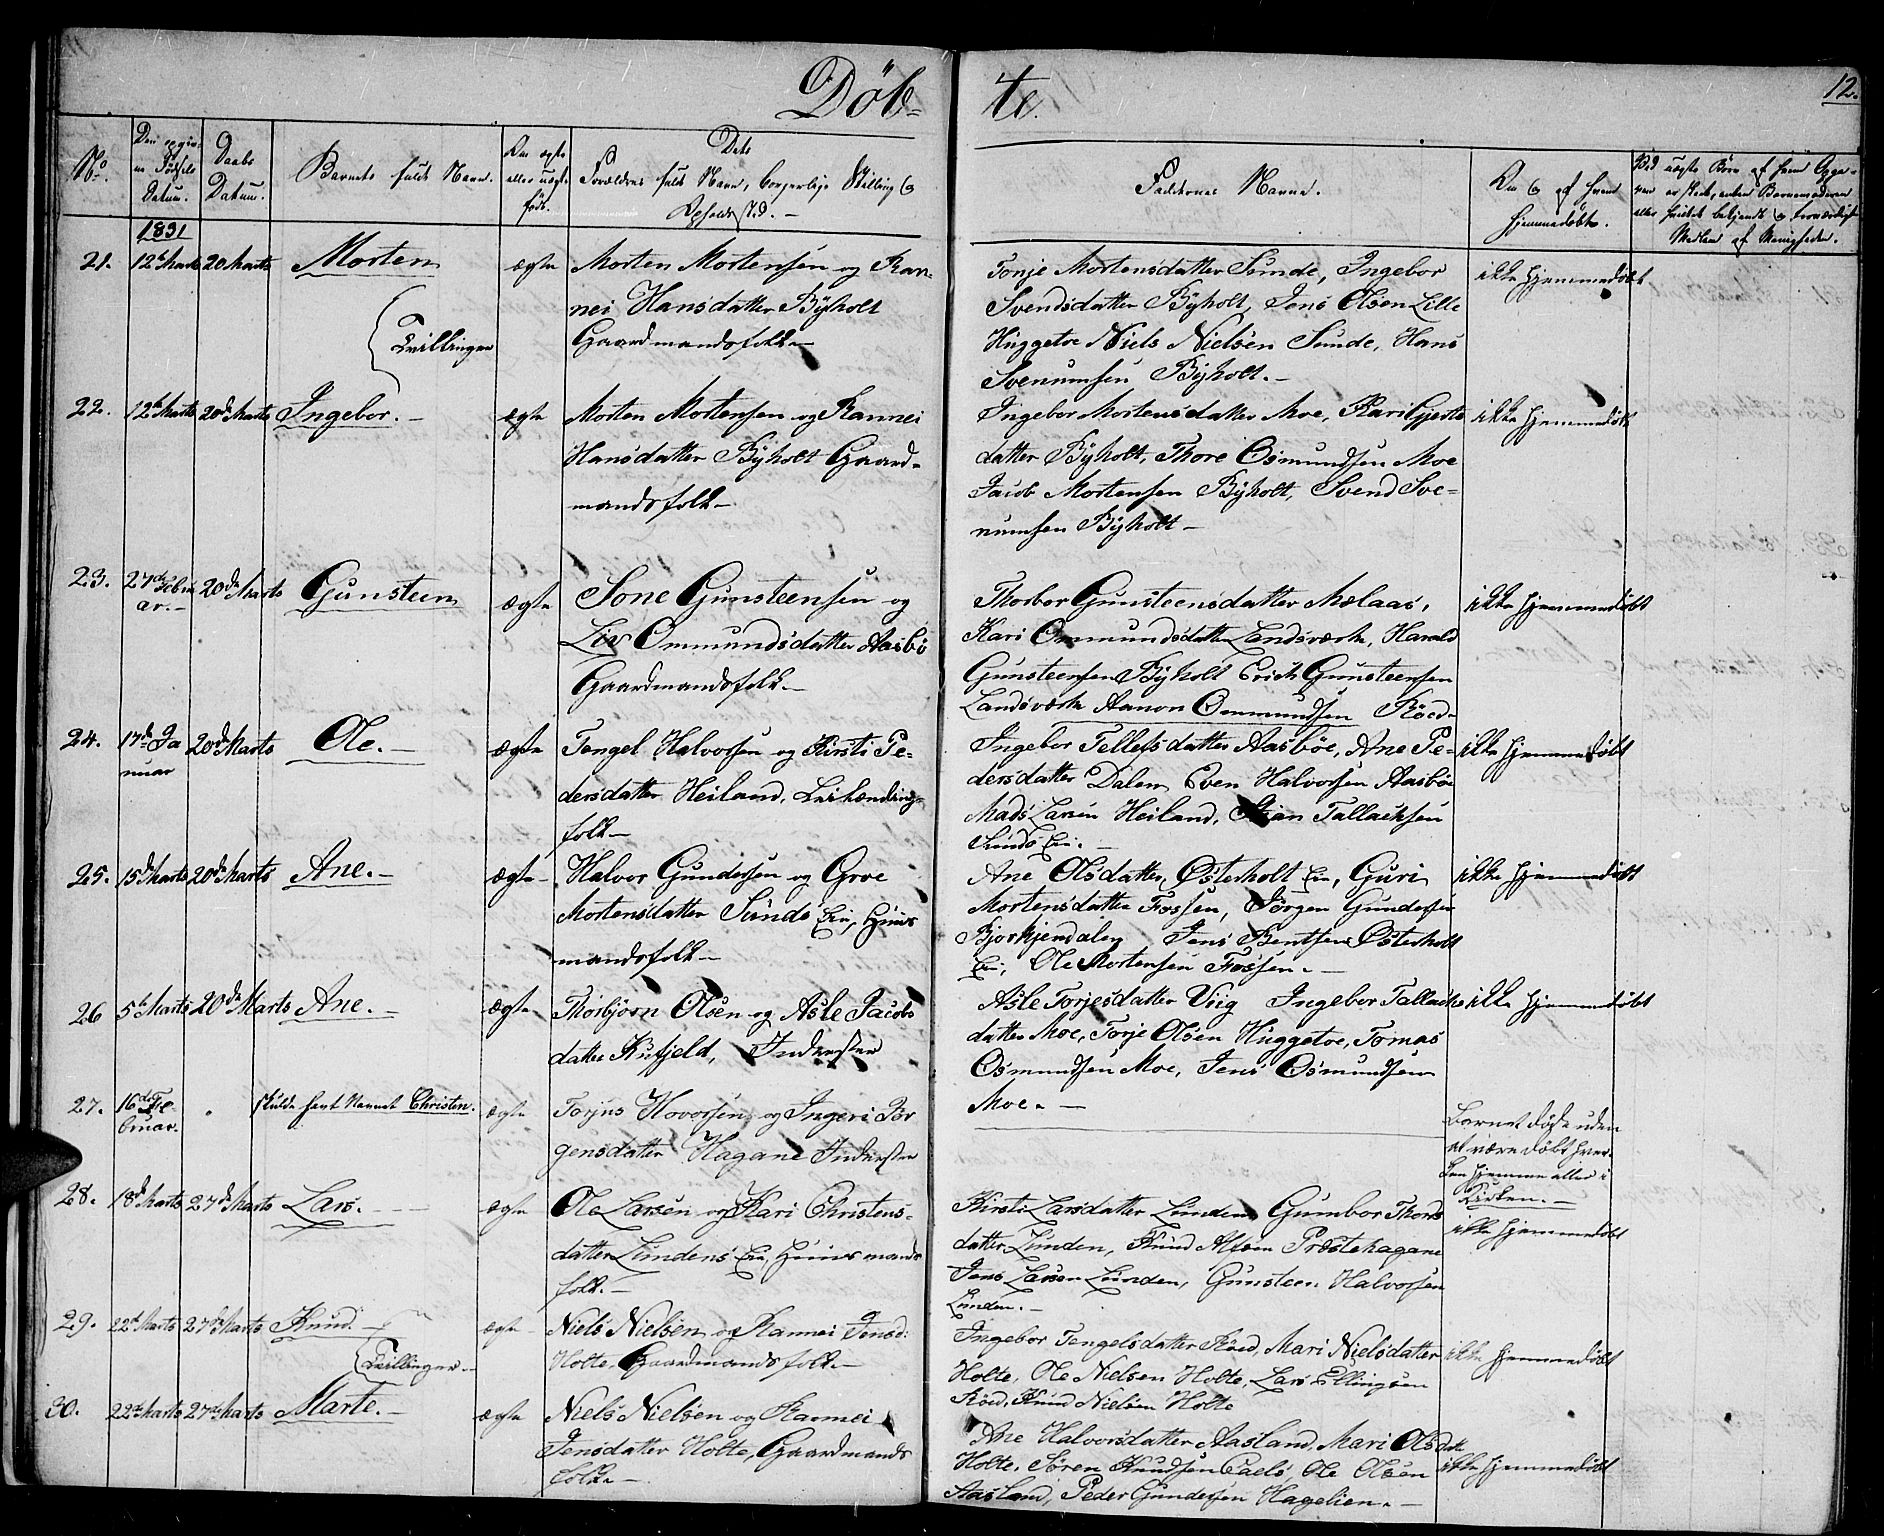 Döb-
te.
12.
No.
Den opgiv-
ne Fødsels
Datum.
Daabs
Datum.
Barnets fulde Navn.
Om ægte
eller uægte
født.
Dets
Forældres fulde Navn, borgerlige Stilling og
Opholdssted. -
Faddernes Navne.
Om og af hvem
hjemmedöbt.
Ved uægte Børn af hvem Opga-
ven er skeet, enten Barnemoderen
eller hvilket bekjendt og troværdigt
Medlem af Menigheden.
1831
21. 12te Marts 20 Marts Morten ægte Morten Mortensen og Ran-
nei Hansdatter Bÿholt
Gaardmandsfolk -
Tvillinger
Tonje Mortensdatter Sunde, Ingebor
Svendsdatter Bÿholt, Jens Olsen Lille
Huggetoe Niels Nielsen Sunde, Hans
Svenumsen Bÿholt. -
ikke hjemmedöbt
22. 12te Marts 20de Marts Ingebor. - ægte Morten Mortensen og Rannei
Hansdatter Bÿholt Gaard-
mandsfolk -
Ingebor Mortensdatter Moe, Kari Gjerts
datter Bÿholt, Thore Osmundsen Moe
Jacob Mortensen Bÿholt, Svend Sve-
numsen Bÿholt -
ikke hjemmedöbt
23. 27de Febru
ar. - 20de Marts Gunsteen ægte Sone Gunsteensen og
Liv Ommundsdatter Aasbö
Gaardmandsfolk. -
Thorbor Gunsteensdatter Mælaas,
Kari Ommundsdatter Landsværk, Harald
Gunsteensen Bÿholt Erich Gunsteensen
Landsværk Aanon Ommundsen Röed -
ikke hjemmedöbt
24. 17de Ja
nuar 20de Marts Ole. - ægte Tengel Halvorsen og Kirsti Pe-
dersdatter Heiland, Leilændings
folk -
Ingebor Tellefsdatter Aasböe, Ane Pe-
dersdatter Dalen Even Halvorsen Aasböe
Mads Larsen Heiland, Stian Tallachsen
Sunds Eie. -
ikke hjemmedöbt
25. 15de Marts 20de Marts Ane. - ægte - Halvor Gundersen og Groe
Mortensdatter Sunds Eie, Huus
mandsfolk -
Ane Olsdatter Østerholt Eie, Guri
Mortensdatter Fossen, Jörgen Gundersen
Bjorkjendalen Jens Bentsen Østerholt
Eie, Ole Mortensen Fossen. -
ikke hjemmedöbt
26 5te Marts 20de Marts Ane. - ægte Thorbjörn Olsen og Asle Jacobs
datter Kufjeld, Inderster
Asle Torjesdatter Viig Ingebor Tallachs
datter Moe, Torje Olsen Huggetoe, Tomas
Osmundsen Moe, Jens Osmundsen
Moe. -
ikke hjemmedöbt
27. 16de Fe-
bruar. skulde havt Navnet Christen. ægte Torjus Hovorsen og Ingeri Jör
gensdatter Hagane Inderster
Barnet döde uden
at være döbt hver-
ken hjemme eller i
Kirken. -
28. 18de Marts 27de Marts Lars. - ægte Ole Larsen og Kari Christens-
datter Lundens Eie, Huusmands
folk. -
Kirsti Larsdatter Lunden Gumbor Thors
datter Lunden, Knud Alfsen Præstehagane
Jens Larsen Lunden, Gunsteen Halvorsen
Lunden. -
ikke hjemmedöbt
29. 22de Marts 27de Marts Knud. - ægte Niels Nielsen og Rannei Jensd:
Holte, Gaardmandsfolk -
Tvillinger -
Ingebor Tengelsdatter Röed, Mari Nielsdatter
Holte, Ole Nielsen Holte, Lars Ellingsen
Röed, Knud Nielsen Holte
ikke hjemmedöbt
30. 22de Marts 27de Marts Marte. - ægte Niels Nielsen og Rannei
Jensdatter Holte, Gaardmands
folk -
Ane Halvorsdatter Aasland, Mari Olsdatter
Holte, Sören Knudsen Ole Olsen
Aasland, Peder Gundersen Hagelien. -
ikke hjemmedöbt